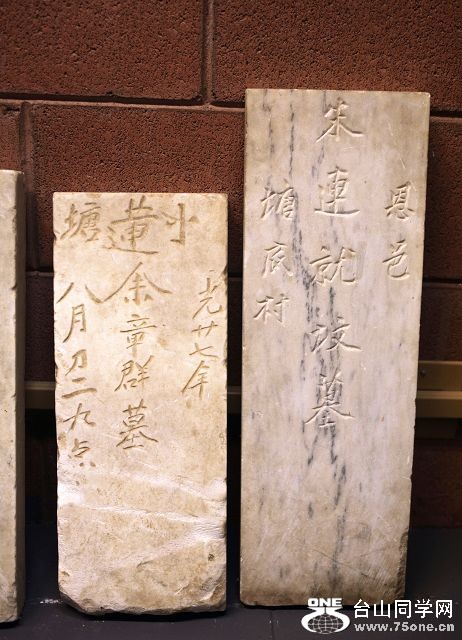 恩邑
朱連就坟墓
塘底村
小蓮塘
光廿七年
余章群墓
八月刀二九
ONE
台山同学网
www.75one.cn